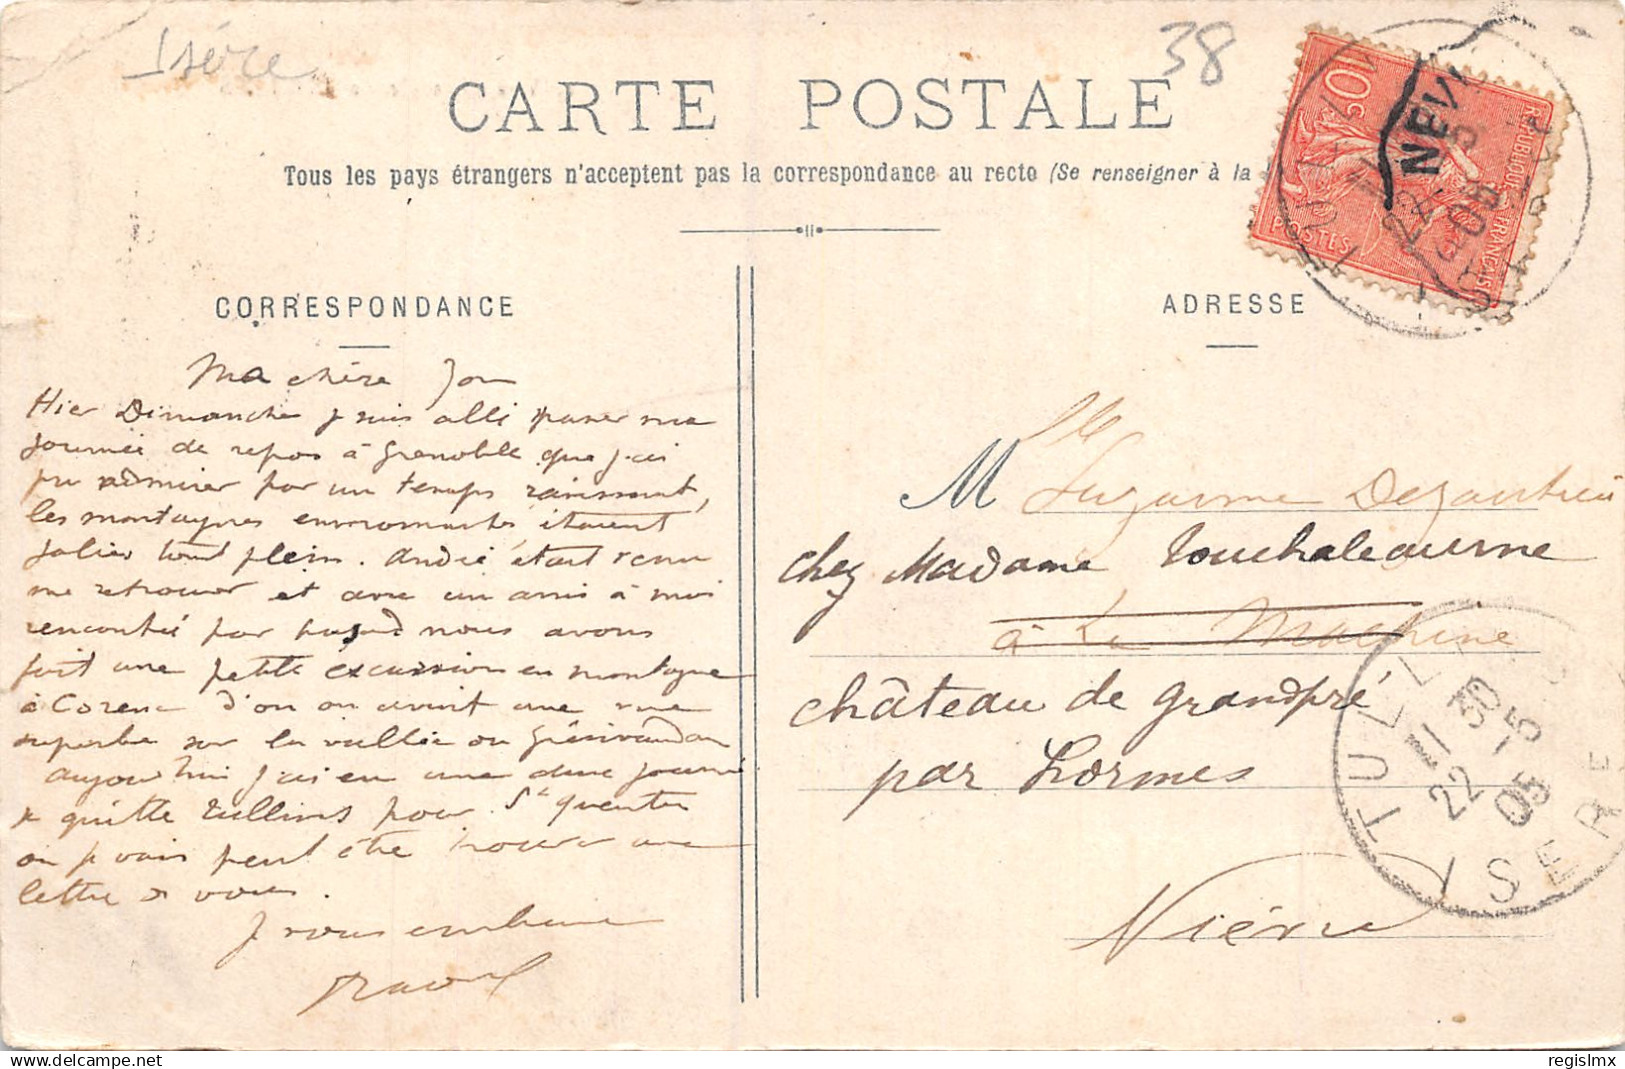 Isére
38
CARTE POSTALE
Tous les pays étrangers n'acceptent pas la correspondance au recto (Se renseigner à la
10c
REPUBLIQUE FRANÇAISE
POSTES
TULLINS
ISERE
22 -5
05
NEV
CORRESPONDANCE
ADRESSE
Ma chère
Hier Dimanche je suis allé passer ma
journée de repos à Grenoble que j'ai
pu admirer par un temps ravissant,
les montagnes environnantes étaient
jolies tout plein. André était venu
me retrouver et avec un ami à moi
rencontré par hasard nous avons
fait une petite excursion en montagne
à Corenc d'où on avait une vue
superbe sur la vallée du Grésivaudan
aujourd'hui j'ai eu une dure journée
je quitte Tullins pour St Quentin
où je vais peut être trouver une
lettre de vous.
Je vous embrasse
Raoul
Mlle Suzanne
chez Madame
à La Machine
château de Grandpré
par Lormes
Nièvre
TULLINS
11 30
22 -5
05
ISERE
regislmx sur Delcampe.net
regislmx